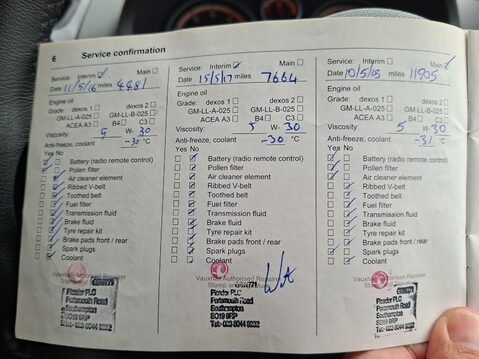 6 Service confirmation
Service: Interim ☑ Main ☐
Date 11/5/16 miles 4481
Engine oil
Grade: dexos 1 ☐ dexos 2 ☐
GM-LL-A-025 ☐ GM-LL-B-025 ☐
ACEA A3 ☐ B4 ☐ C3 ☐
Viscosity: 5 W- 30
Anti-freeze, coolant -30 °C
Yes No
Battery (radio remote control)
Pollen filter
Air cleaner element
Ribbed V-belt
Toothed belt
Fuel filter
Transmission fluid
Brake fluid
Tyre repair kit
Brake pads front / rear
Spark plugs
Coolant
Vauxhall Authorised Repairer
Stamp
Pleader PLC
Portsmouth Road
Southampton
SO19 9RP
Tel:- 023 8044 9232
Service: Interim ☑ Main ☐
Date 15/5/17 miles 7664
Engine oil
Grade: dexos 1 ☐ dexos 2 ☐
GM-LL-A-025 ☐ GM-LL-B-025 ☐
ACEA A3 ☐ B4 ☐ C3 ☐
Viscosity: 5 W- 30
Anti-freeze, coolant -30 °C
Yes No
Battery (radio remote control)
Pollen filter
Air cleaner element
Ribbed V-belt
Toothed belt
Fuel filter
Transmission fluid
Brake fluid
Tyre repair kit
Brake pads front / rear
Spark plugs
Coolant
Vauxhall Authorised Repairer
Stamp
PLC
Portsmouth Road
Southampton
SO19 9RP
Tel:- 023 8044 9232
Service: Interim ☐ Main ☑
Date 10/5/18 miles 11905
Engine oil
Grade: dexos 1 ☐ dexos 2 ☐
GM-LL-A-025 ☐ GM-LL-B-025 ☐
ACEA A3 ☐ B4 ☐ C3 ☐
Viscosity: 5 W- 30
Anti-freeze, coolant -31 °C
Yes No
Battery (radio remote control)
Pollen filter
Air cleaner element
Ribbed V-belt
Toothed belt
Fuel filter
Transmission fluid
Brake fluid
Tyre repair kit
Brake pads front / rear
Spark plugs
Coolant
Vauxhall Authorised Repairer
Stamp
PLC
Portsmouth Road
Southampton
SO19 9RP
Tel:- 023 8044 9232